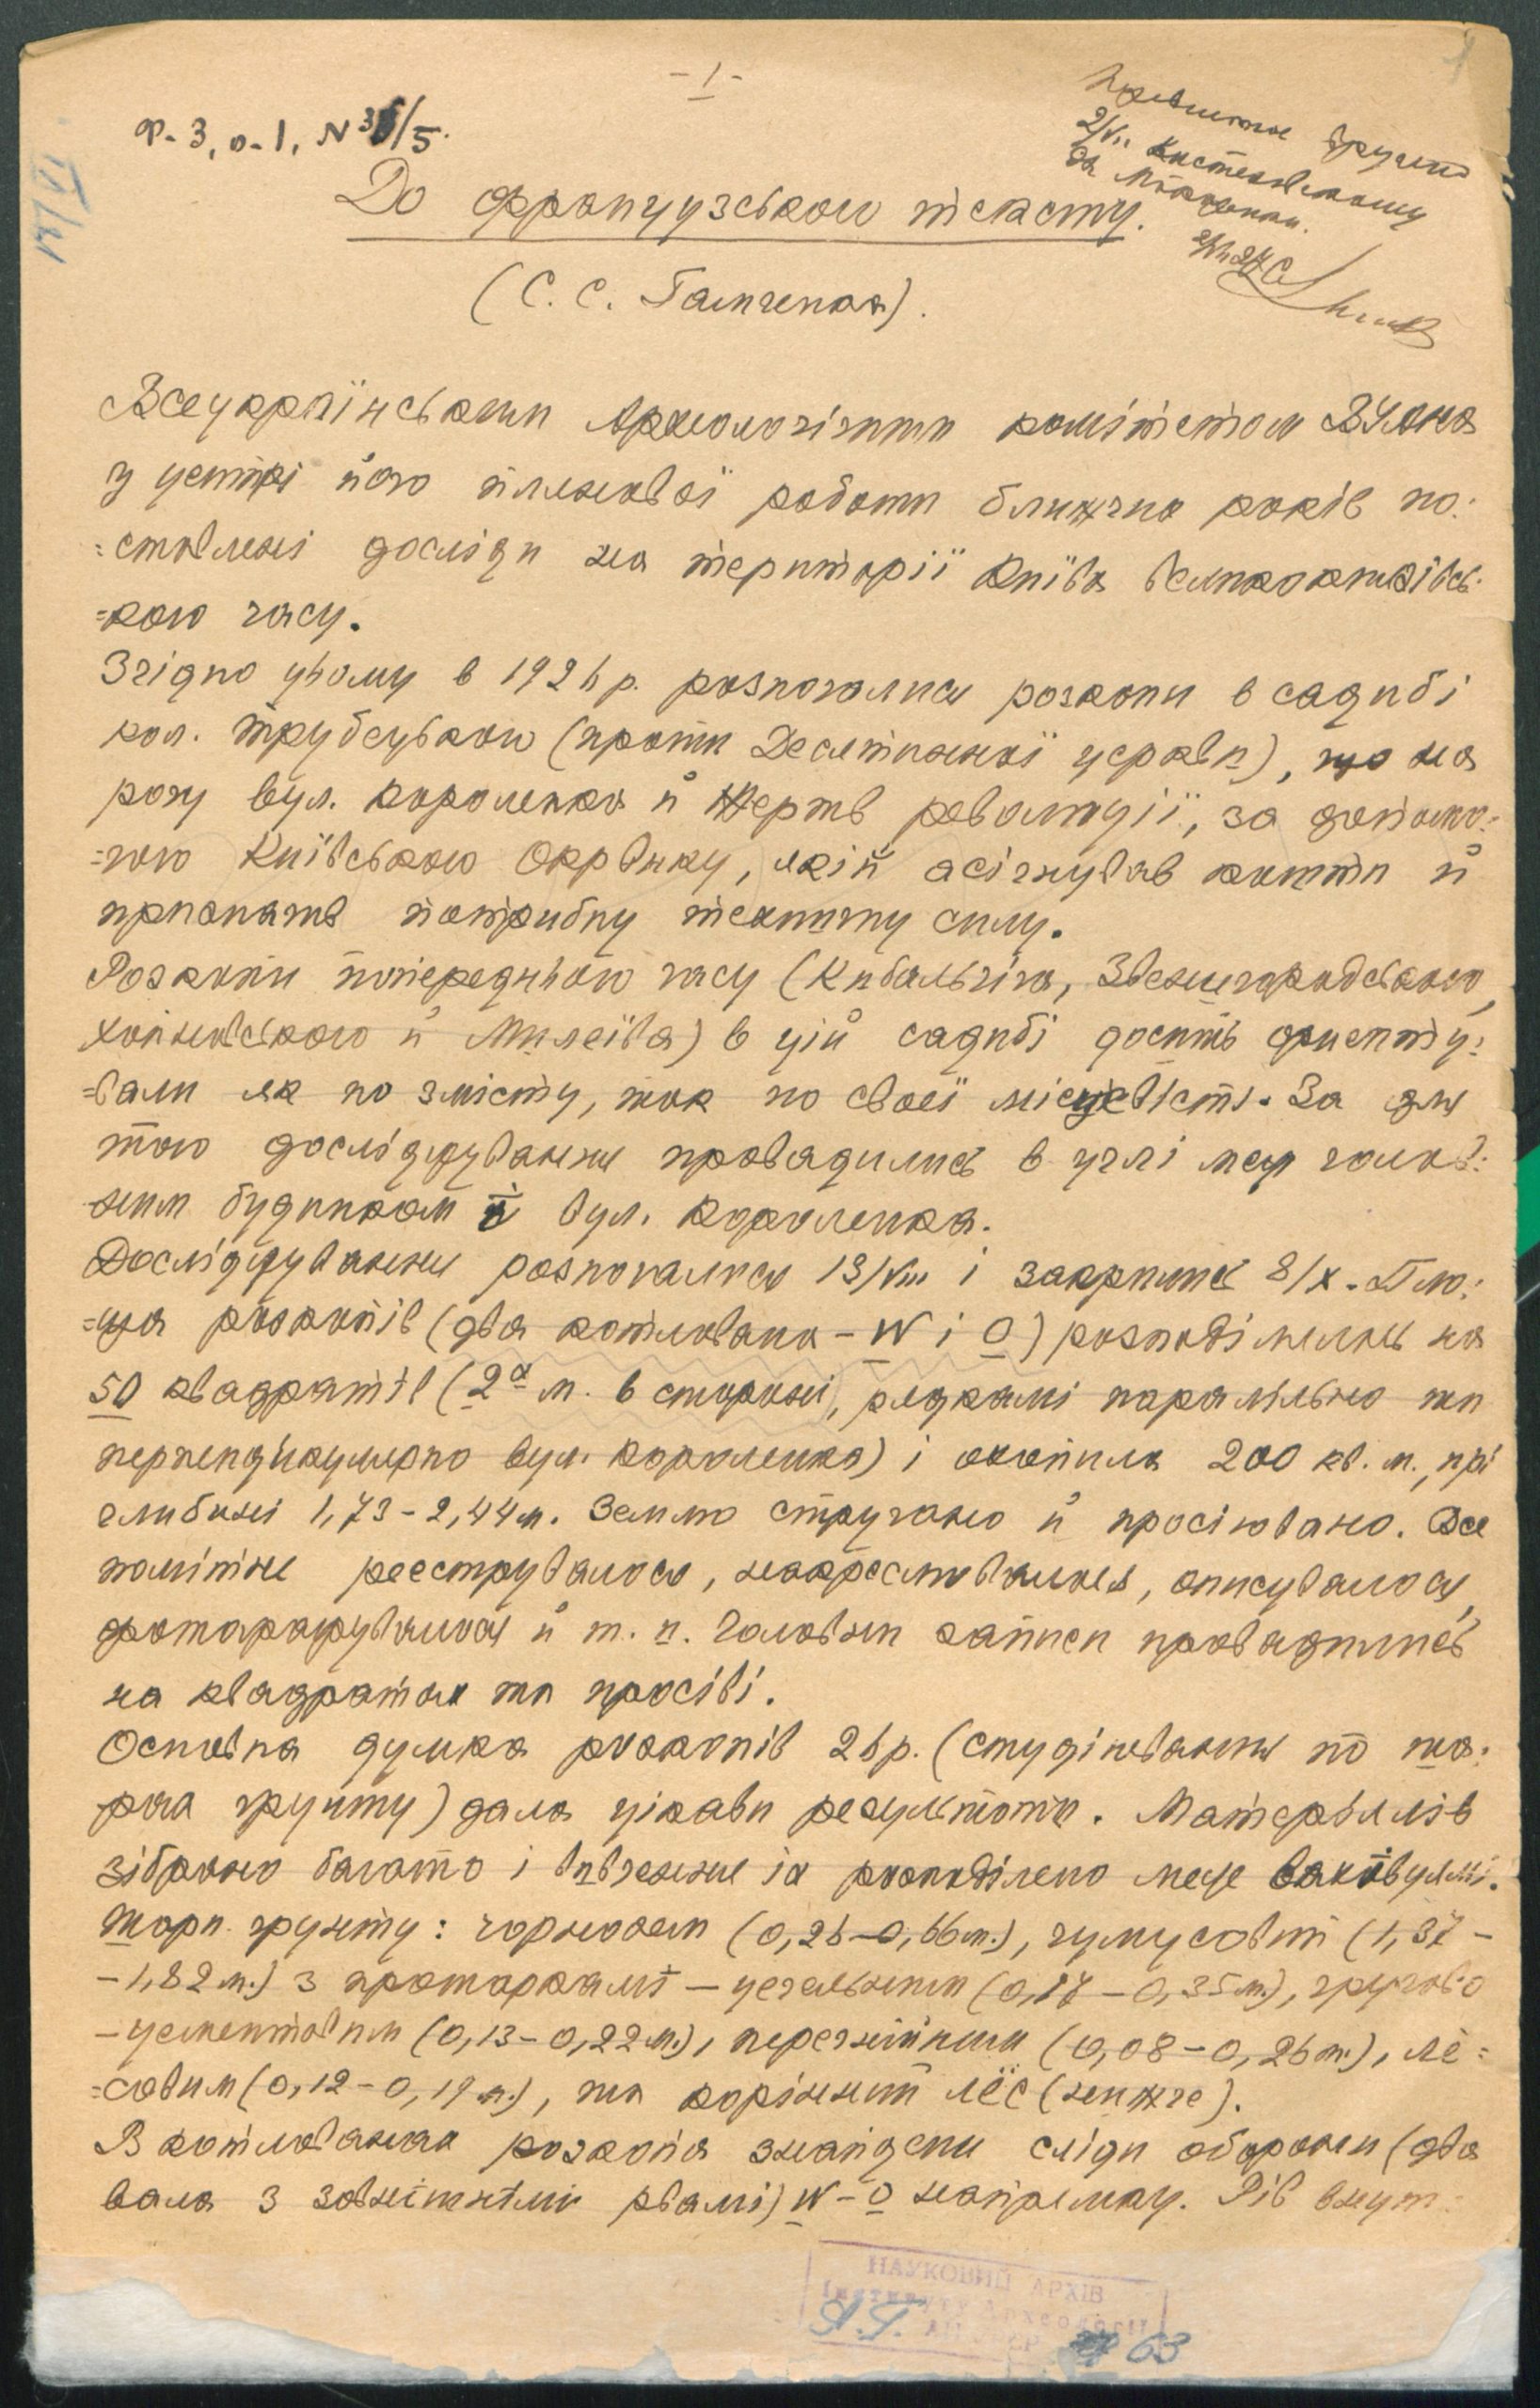 - 1 -
Ф-3, о-1, N 36/5.
2/VII
До французького тексту.
(С. С. Гамченка).
Всеукраїнським Археологічним комітетом ВУАНа
у цетрі його плянової роботи ближчих років по-
=ставлені досліди на території Київа великокнязівсь-
=кого часу.
Згідно цьому в 1926 р. розпочались розкопи в садибі
кол. Трубецького (проти Десятинної церкви), що на
розі вул. Короленка й Жертв революції, за допомо-
=гою Київського Окрвику, якій асігнував кошти й
прикомандував потрібну технічну силу.
Розкопи попереднього часу (Кибальчіча, Звенигородського,
Хойновського й Мілєїва) в цій садибі досить
=вали як по змісту, так по своєї місцевісті. За для
того дослідження провадились в углі між голов-
ним будинком й вул. Короленка.
Досліджування розпочалися 13/VIII і закрились 8/X. Пло-
=ща розкопів (два котлована - W і O) розподілялась на
50 квадратів (2х м. в стороні, рядкамі паралєльно та
перпендікулярно вул. Короленка) і охопила 200 кв. м., прі
глибині 1,73-2,44 м. Землю стругано й просіювано. Все
помітне реєструвалося, накреслювалося, описувалося,
фотографувалося й т. п. Головни записи провадились
на квадратах та просіві.
Основна думка розкопів 26 р. (студіювання по ша-
рах грунту) дала цікави результати. Матеріялів
зібрано багато і вивчення їх розподілено
Шари грунту: чорнозем (0,26-0,66 м.), гумусовий (1,37-
-1,82 м.) з прошаркамі - цегельним (0,17-0,35 м.), грузово
-цементовим (0,13-0,22 м.), перегнійним (0,08-0,26 м.), лё-
=совим (0,12-0,19 м.), та корінний лёс (нижче).
В котлованах розкопа знайдени сліди оборони (два
вала з зовнішнімі рвамі) W-O напрямку. Рів внут-
НАУКОВИЙ АРХІВ
Інституту Археології
№ 63